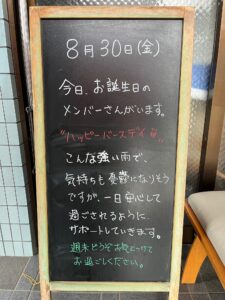 8月30日(金)
今日、お誕生日の
メンバーさんがいます。
"ハッピーバースデイ
こんな強い雨で、
気持ちも憂鬱になりそう
ですが、一日安心して
過ごされるように
サポートしていきます。
週末どうぞお気をつけて
お過ごしください。